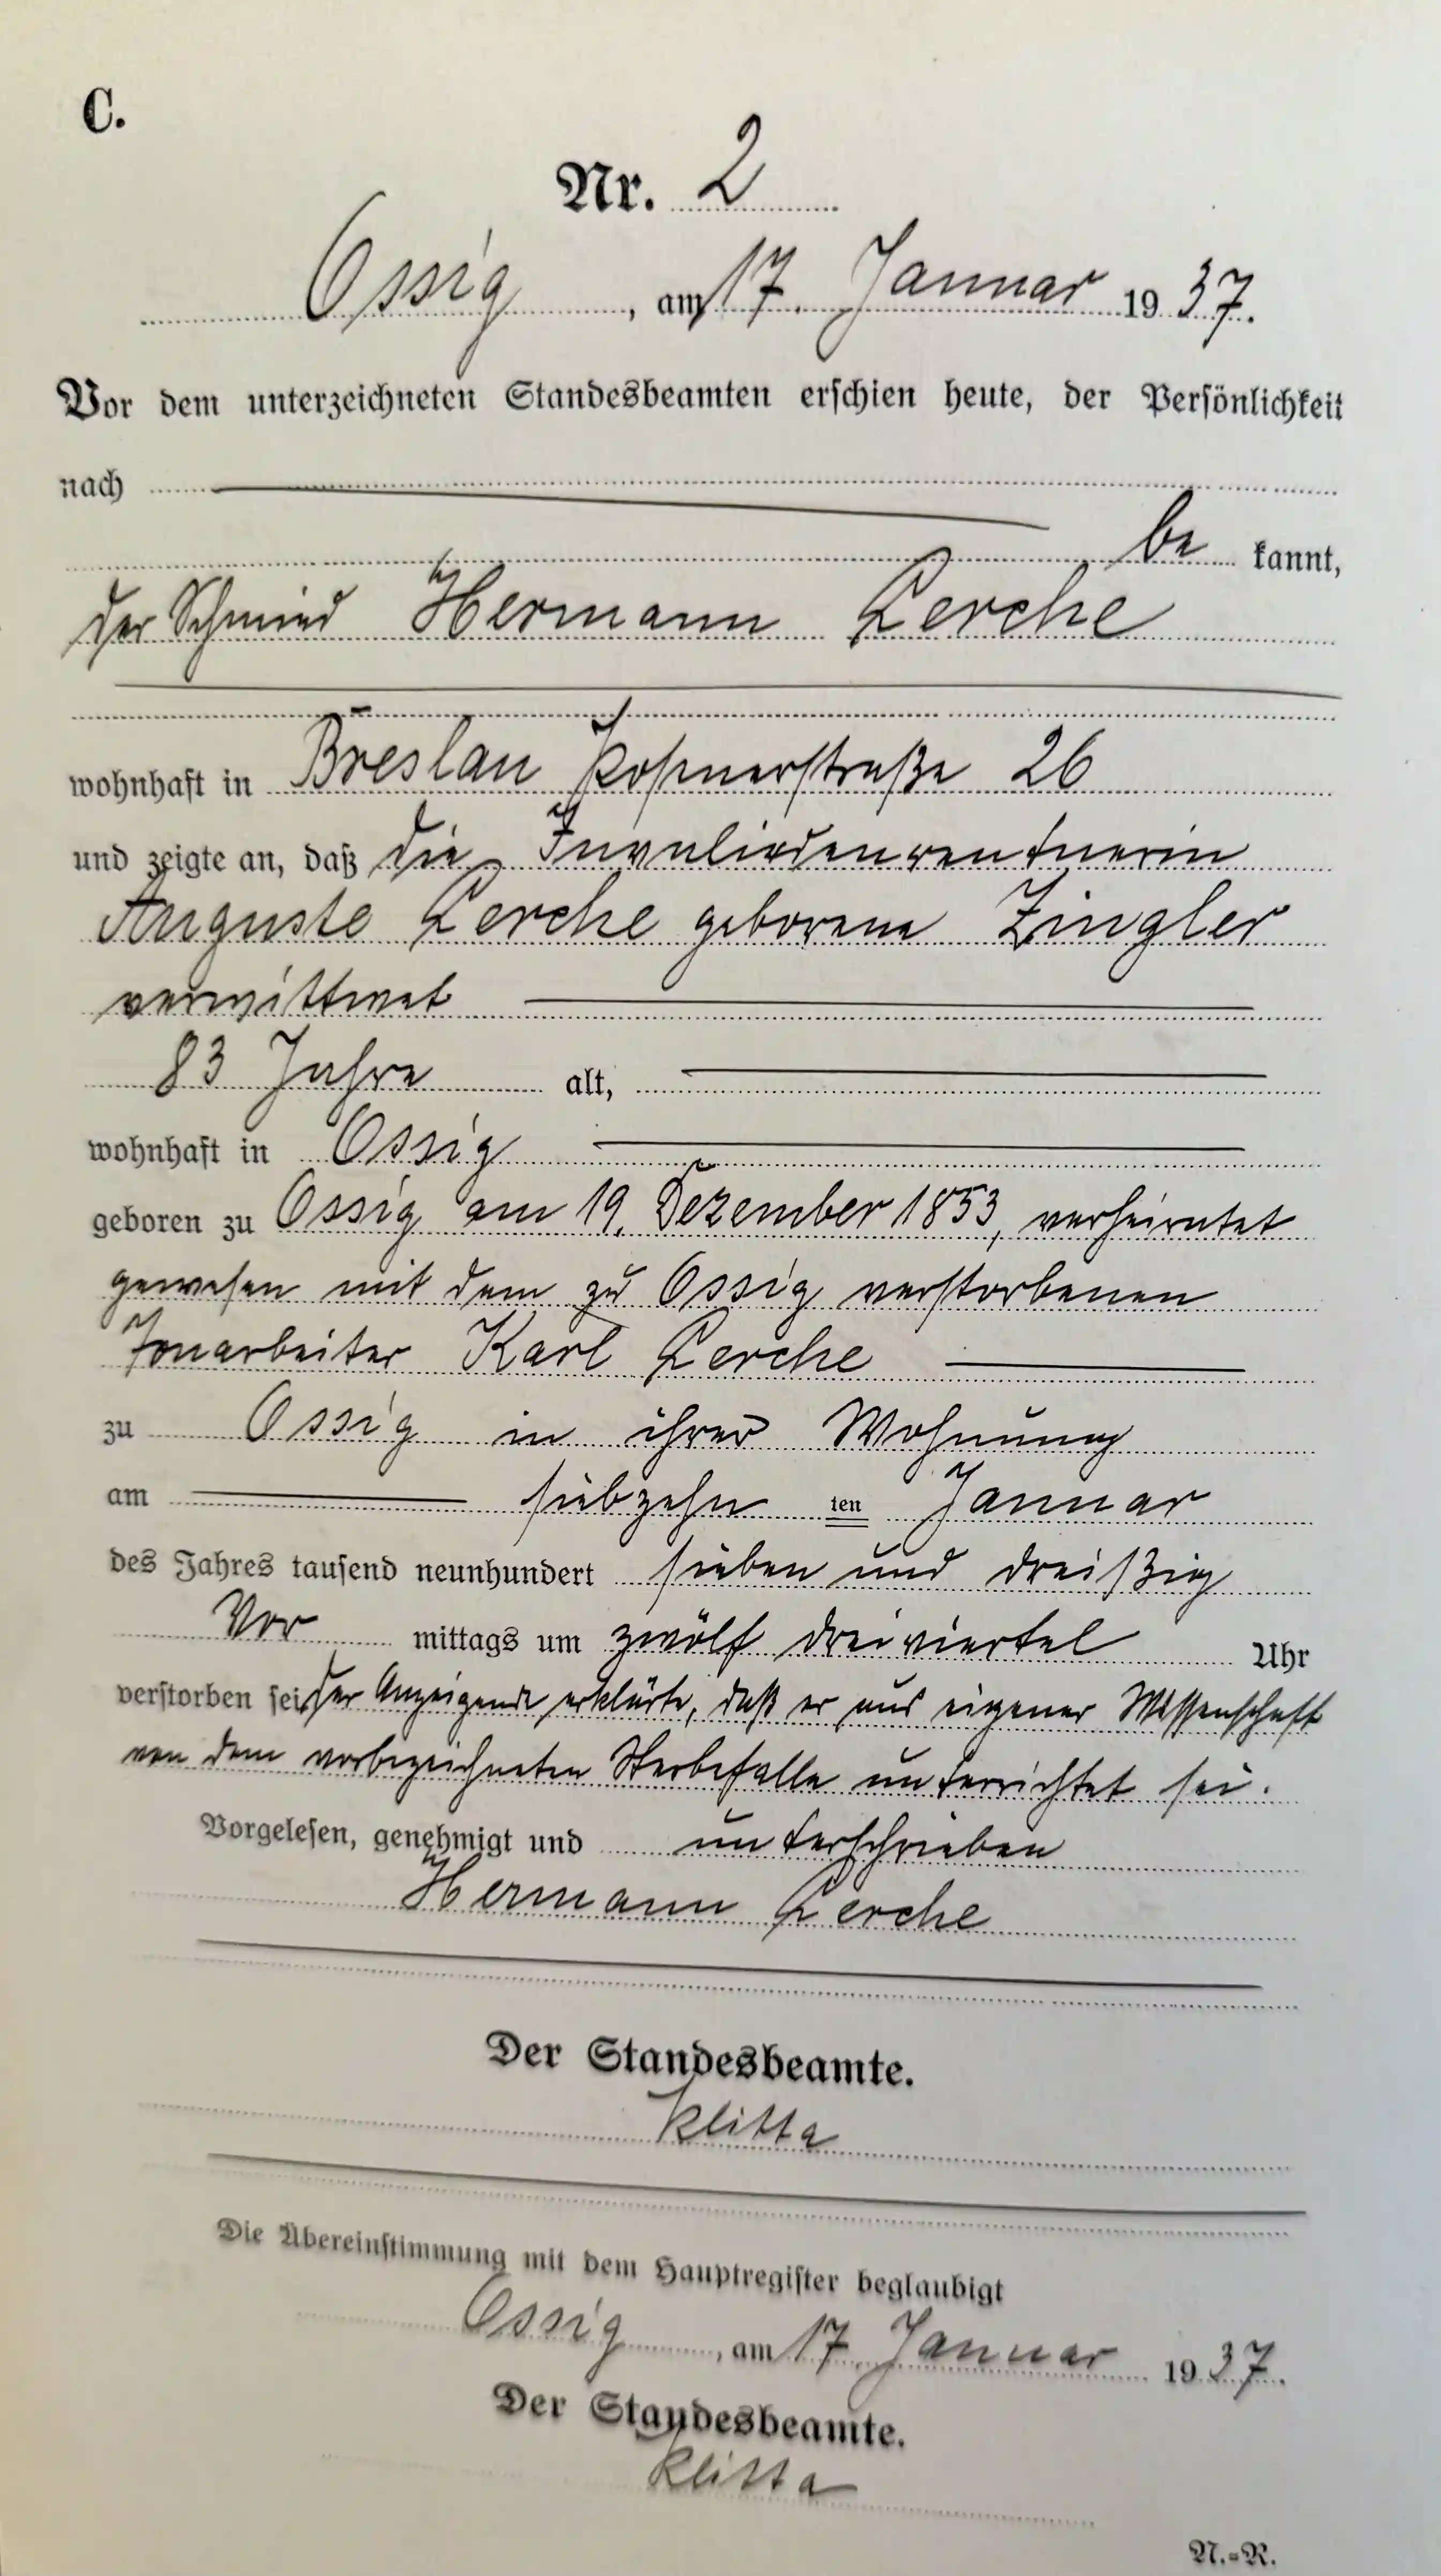 C.
Nr. 2
Ossig, am 17. Januar 1937.
Vor dem unterzeichneten Standesbeamten erschien heute, der Persönlichkeit
nach
be kannt,
der Schmied Hermann Lerche
wohnhaft in Breslau Posenerstraße 26
und zeigte an, daß die Invalidenrentnerin
Auguste Lerche geborene Zingler
verwittwet
83 Jahre alt,
wohnhaft in Ossig
geboren zu Ossig am 19. Dezember 1853, verheiratet
gewesen mit dem zu Ossig verstorbenen
Tonarbeiter Karl Lerche
zu Ossig in ihrer Wohnung
am siebzehn ten Januar
des Jahres tausend neunhundert sieben und dreißig
Vor mittags um zwölf dreiviertel Uhr
verstorben sei, der Anzeigende erklärte, daß er aus eigener Wissenschaft
von dem vorbezeichneten Sterbefalle unterrichtet sei.
Vorgelesen, genehmigt und unterschrieben
Hermann Lerche
Der Standesbeamte.
Klitta
Die Übereinstimmung mit dem Hauptregister beglaubigt
Ossig, am 17. Januar 1937.
Der Standesbeamte.
Klitta
N.=R.